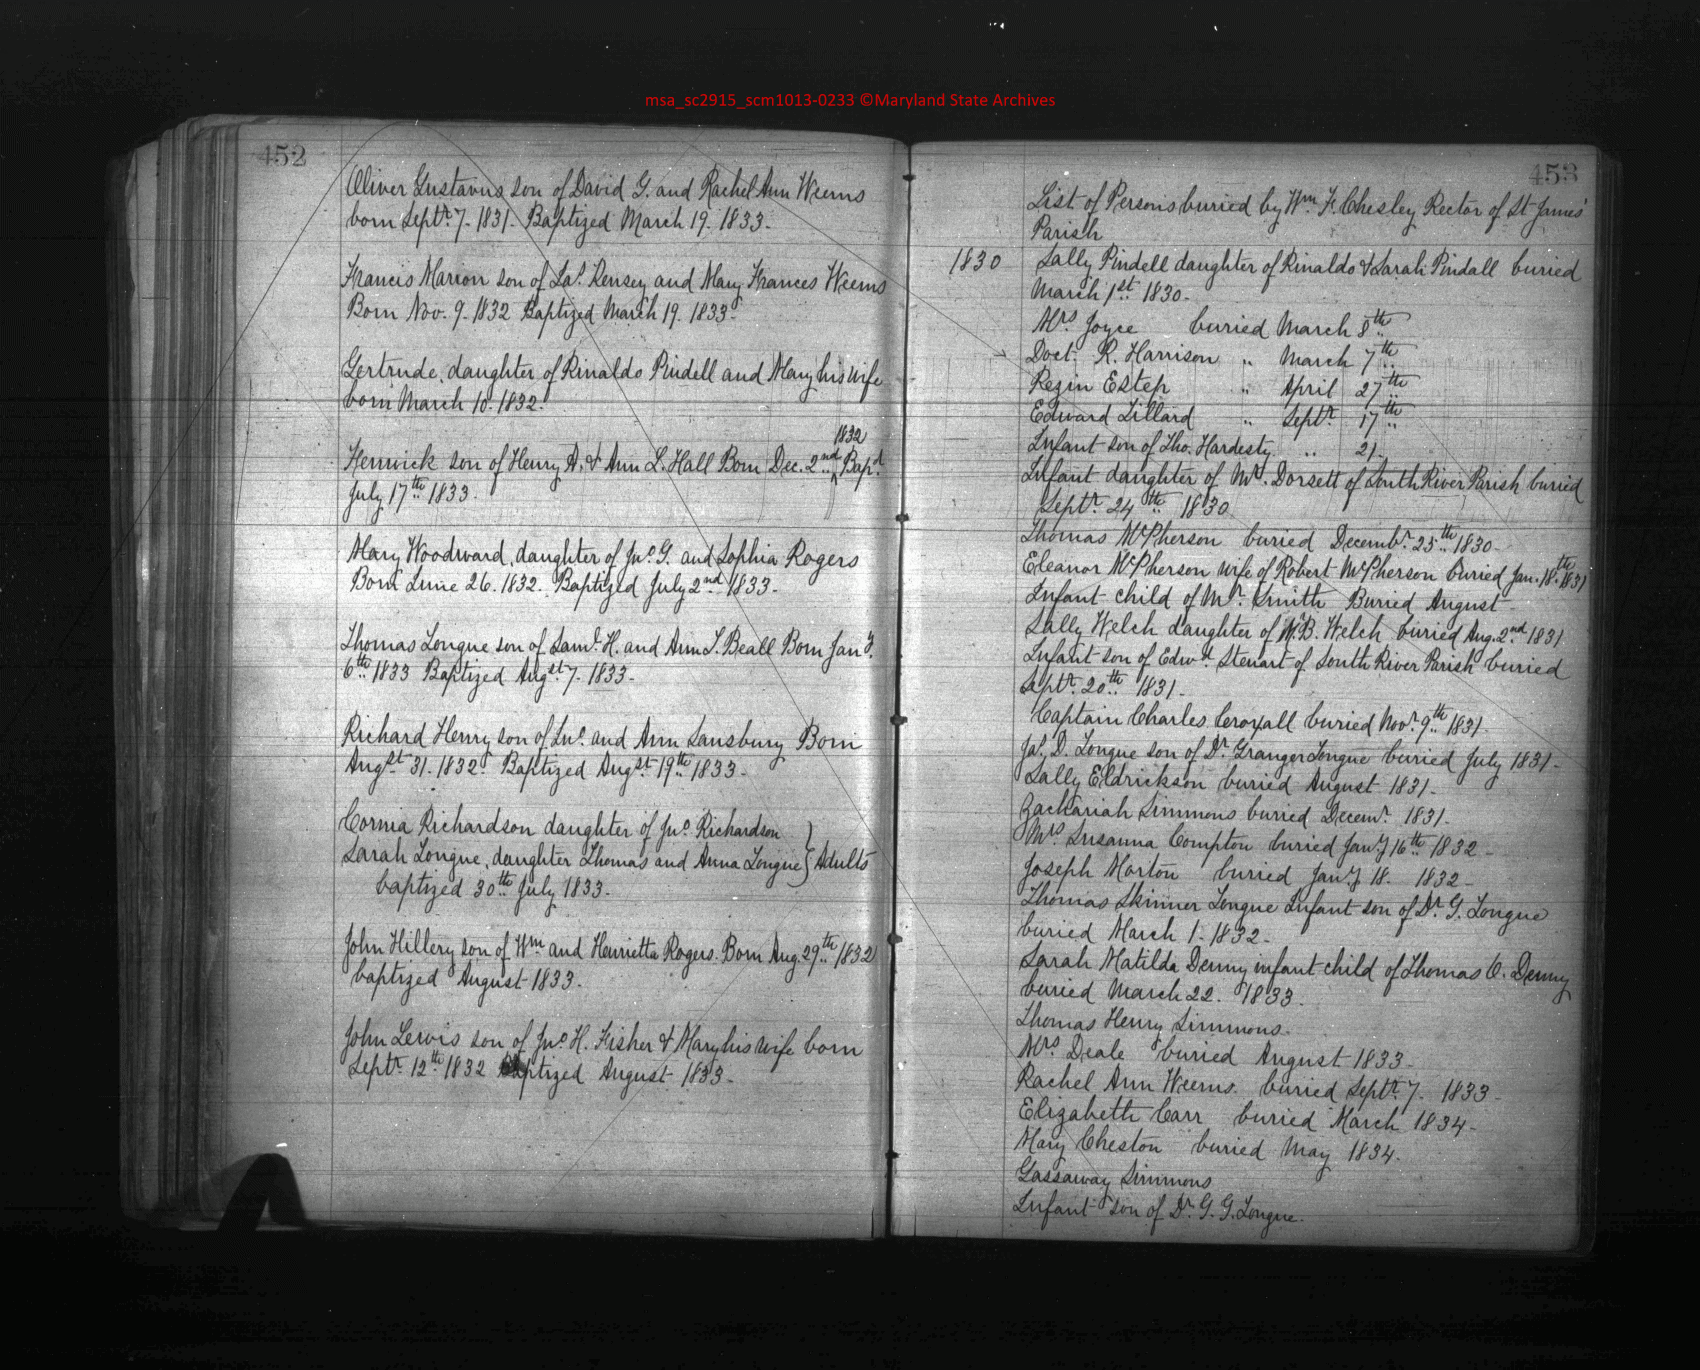 msa_sc2915_scm1013-0233 ©Maryland State Archives
452
Oliver Gustavus son of David G. and Rachel Ann Weems
born Septr. 7. 1831. Baptized March 19. 1833.
Francis Marion son of Jas. Kensey and Mary Frances Weems
Born Nov. 9. 1832 Baptized March 19. 1833.
Gertrude, daughter of Rinaldo Pindell and Mary his wife
born March 10. 1832.
1832
Henwick son of Henry A. & Ann L. Hall Born Dec. 2nd ^ Bapd.
July 17th 1833.
Mary Woodward, daughter of Jno. G. and Sophia Rogers
Born June 26. 1832. Baptized July 2nd 1833.
Thomas Tongue son of Saml. H. and Ann T. Beall Born Jany.
6th 1833 Baptized Augst 7. 1833.
Richard Henry son of Jno. and Ann Sansbury Born
Augst. 31. 1832. Baptized Augst. 19th 1833.
Cornia Richardson daughter of Jno. Richardson
Sarah Tongue, daughter Thomas and Anna Tongue } Adults
baptized 30th July 1833.
John Hillery son of Wm and Henrietta Rogers. Born Aug. 29th 1832
baptized August 1833.
John Lewis son of Jno. H. Fisher & Mary his wife born
Septr. 12th 1832 Baptized August 1833.
453
List of Persons buried by Wm. F. Chesley Rector of St James'
Parish
1830 Sally Pindell daughter of Rinaldo & Sarah Pindall buried
March 1st 1830.
Mrs Joyce buried March 8th
Doct. R. Harrison " March 7th
Rezin Estep " April 27th
Edward Lillard " Septr. 17th
Infant son of Tho. Hardesty " 21.
Infant daughter of Mr. Dorsett of South River Parish buried
Septr. 24th 1830
Thomas McPherson buried Decembr. 25th 1830.
Eleanor McPherson wife of Robert McPherson buried Jan. 18th 1831
Infant child of Mr. Smith Buried August
Sally Welch daughter of W. B. Welch buried Aug. 2nd 1831
Infant son of Edwd. Steuart of South River Parish buried
Septr. 20th 1831.
Captain Charles Croxall buried Novr. 9th 1831.
Jas. D. Tongue son of Dr. Granger Tongue buried July 1831.
Sally Eldrickson buried August 1831.
Zachariah Simmons buried Decemr. 1831.
Mrs Susanna Compton buried Jany 16th 1832
Joseph Morton buried Jany 18. 1832.
Thomas Skinner Tongue Infant son of Dr. G. Tongue
buried March 1. 1832.
Sarah Matilda Denny infant child of Thomas O. Denny
buried March 22. 1833.
Thomas Henry Simmons.
Mrs Deale buried August 1833.
Rachel Ann Weems. buried Septr. 7. 1833.
Elizabeth Carr buried March 1834.
Mary Cheston buried May 1834.
Gassaway Simmons
Infant son of Dr. G. G. Tongue.